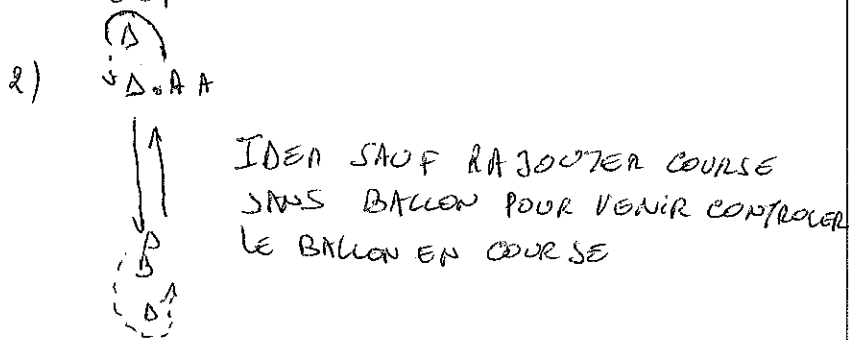 2)
A A
IDEM SAUF RAJOUTER COURSE
SANS BALLON POUR VENIR CONTROLER
LE BALLON EN COURSE
B